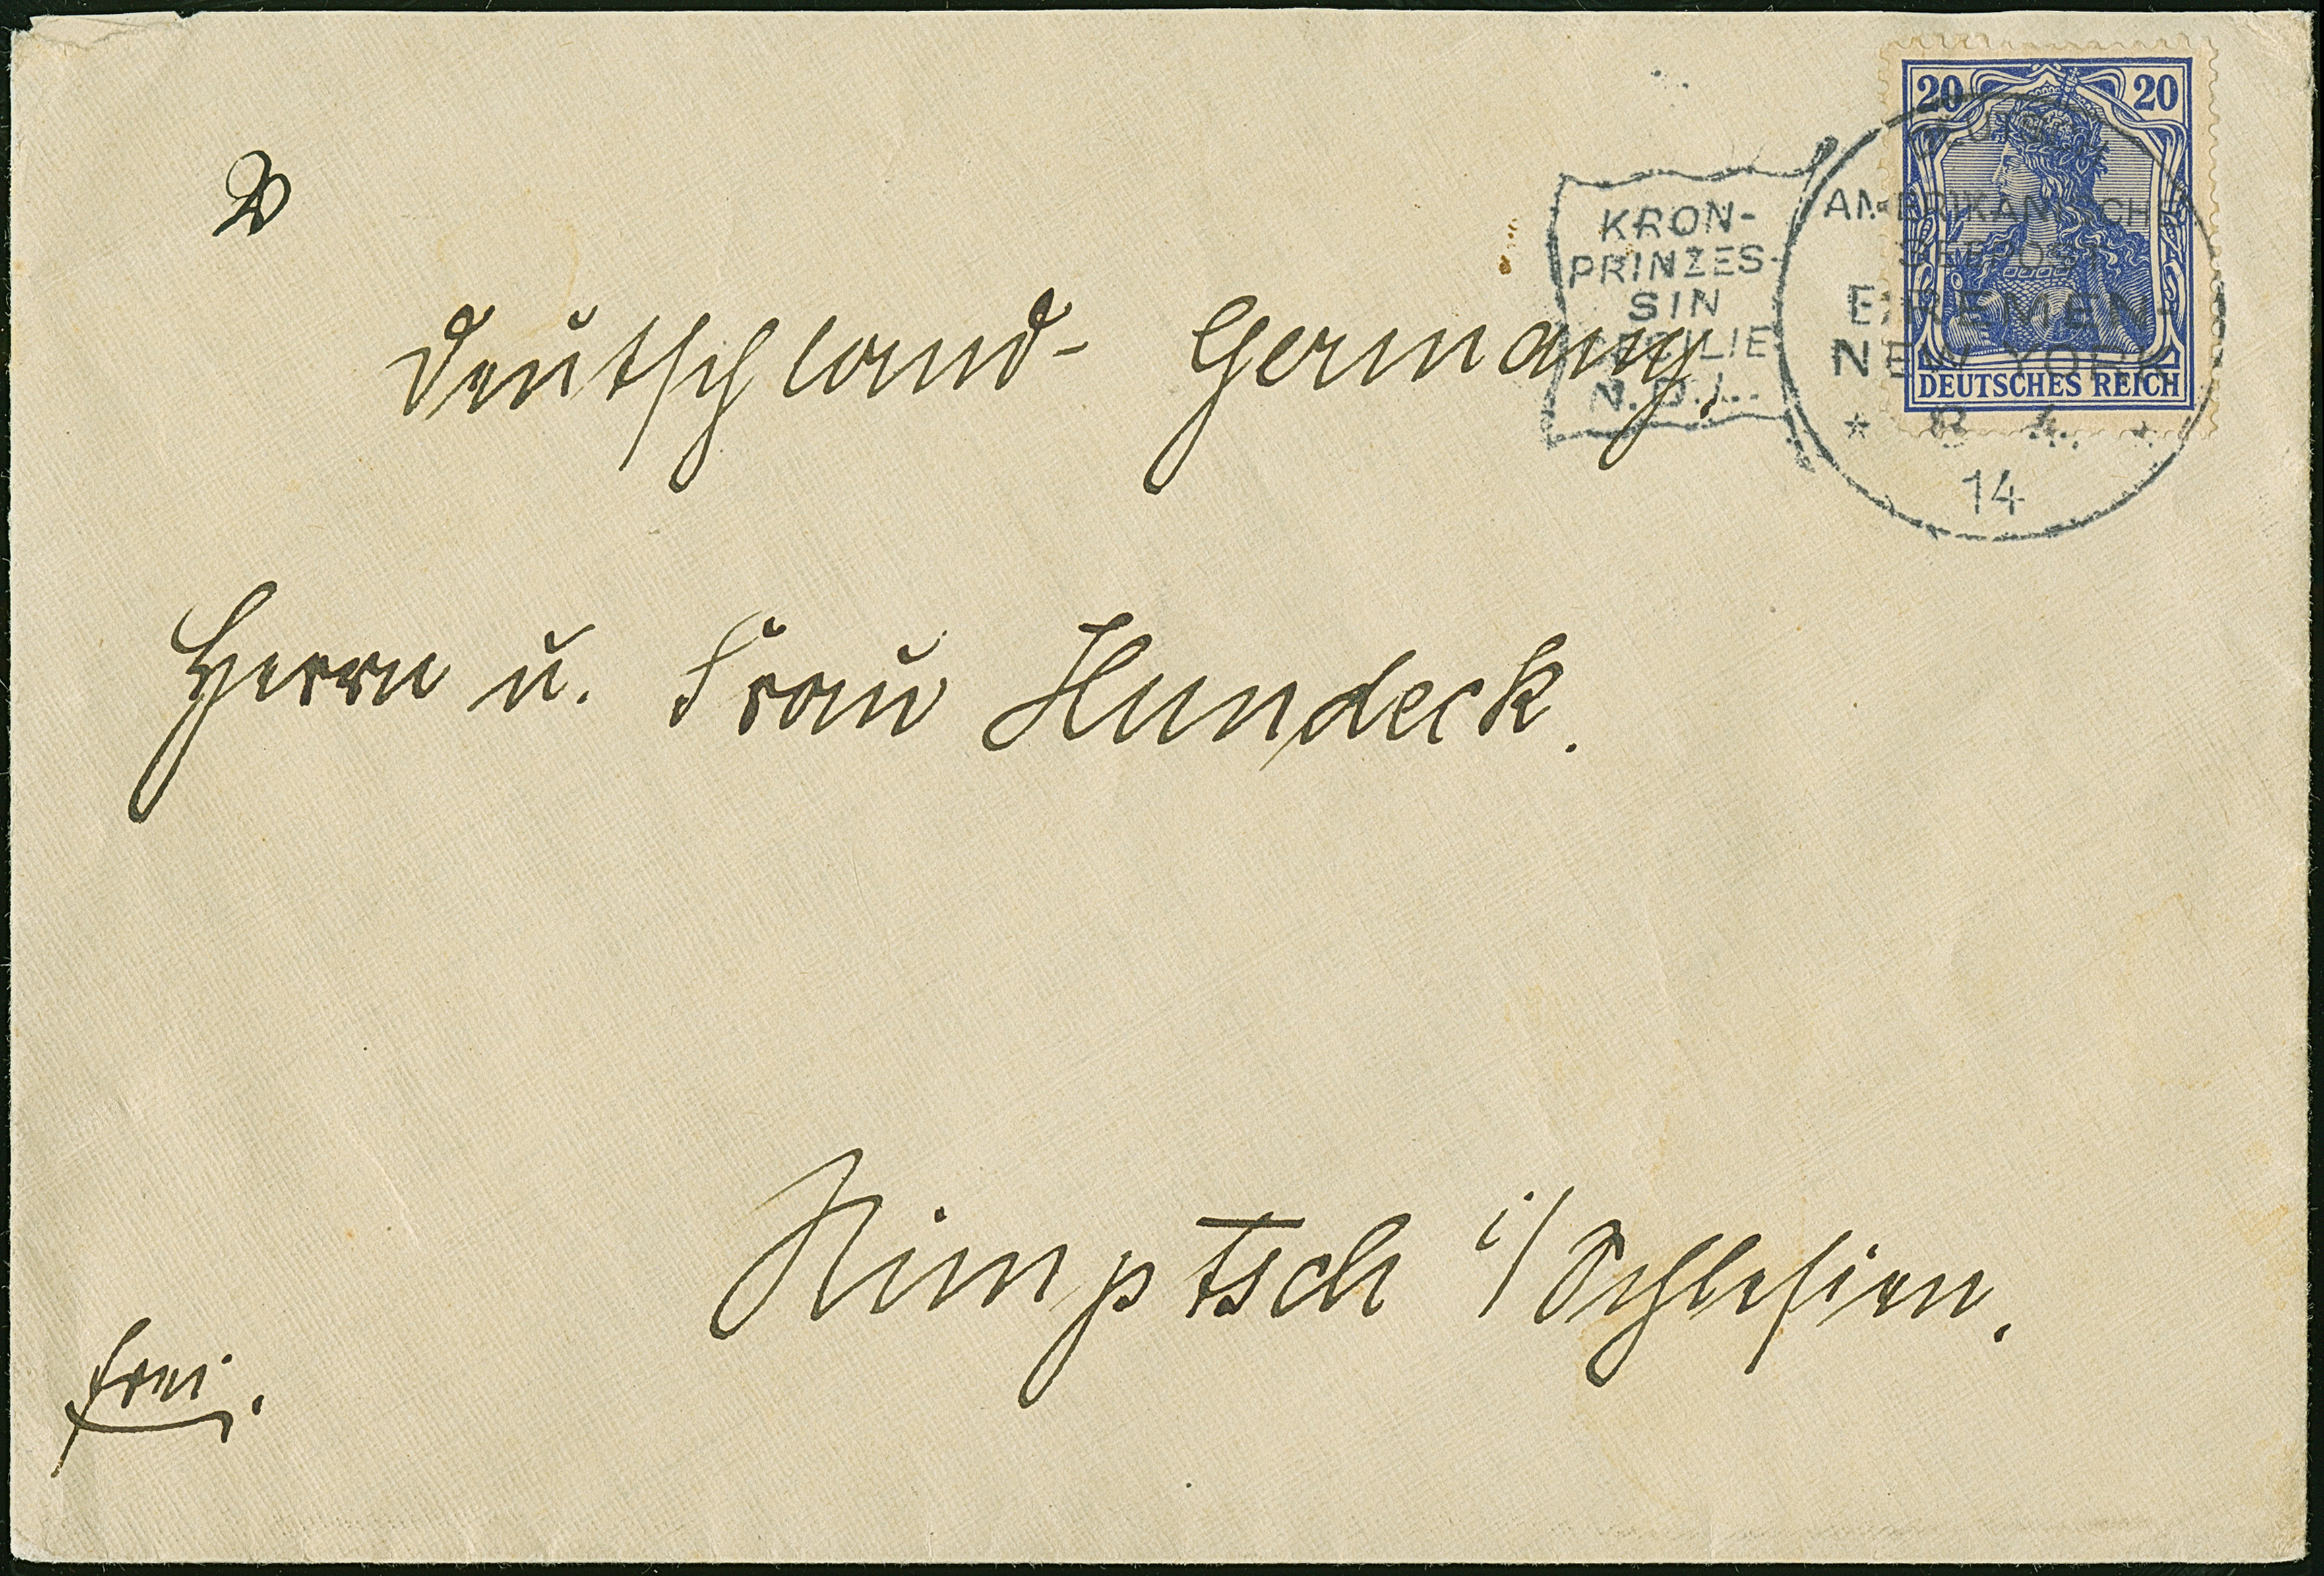 20 20
DEUTSCHES REICH
KRON-
PRINZES-
SIN
CECILIE
N.D.L.
AMERIKANISCHE
SEEPOST
BREMEN-
NEW YORK
* 8 4. *
14
Deutschland- Germany.
Herrn u. Frau Hundeck.
Nimptsch i/Schlesien.
frei.